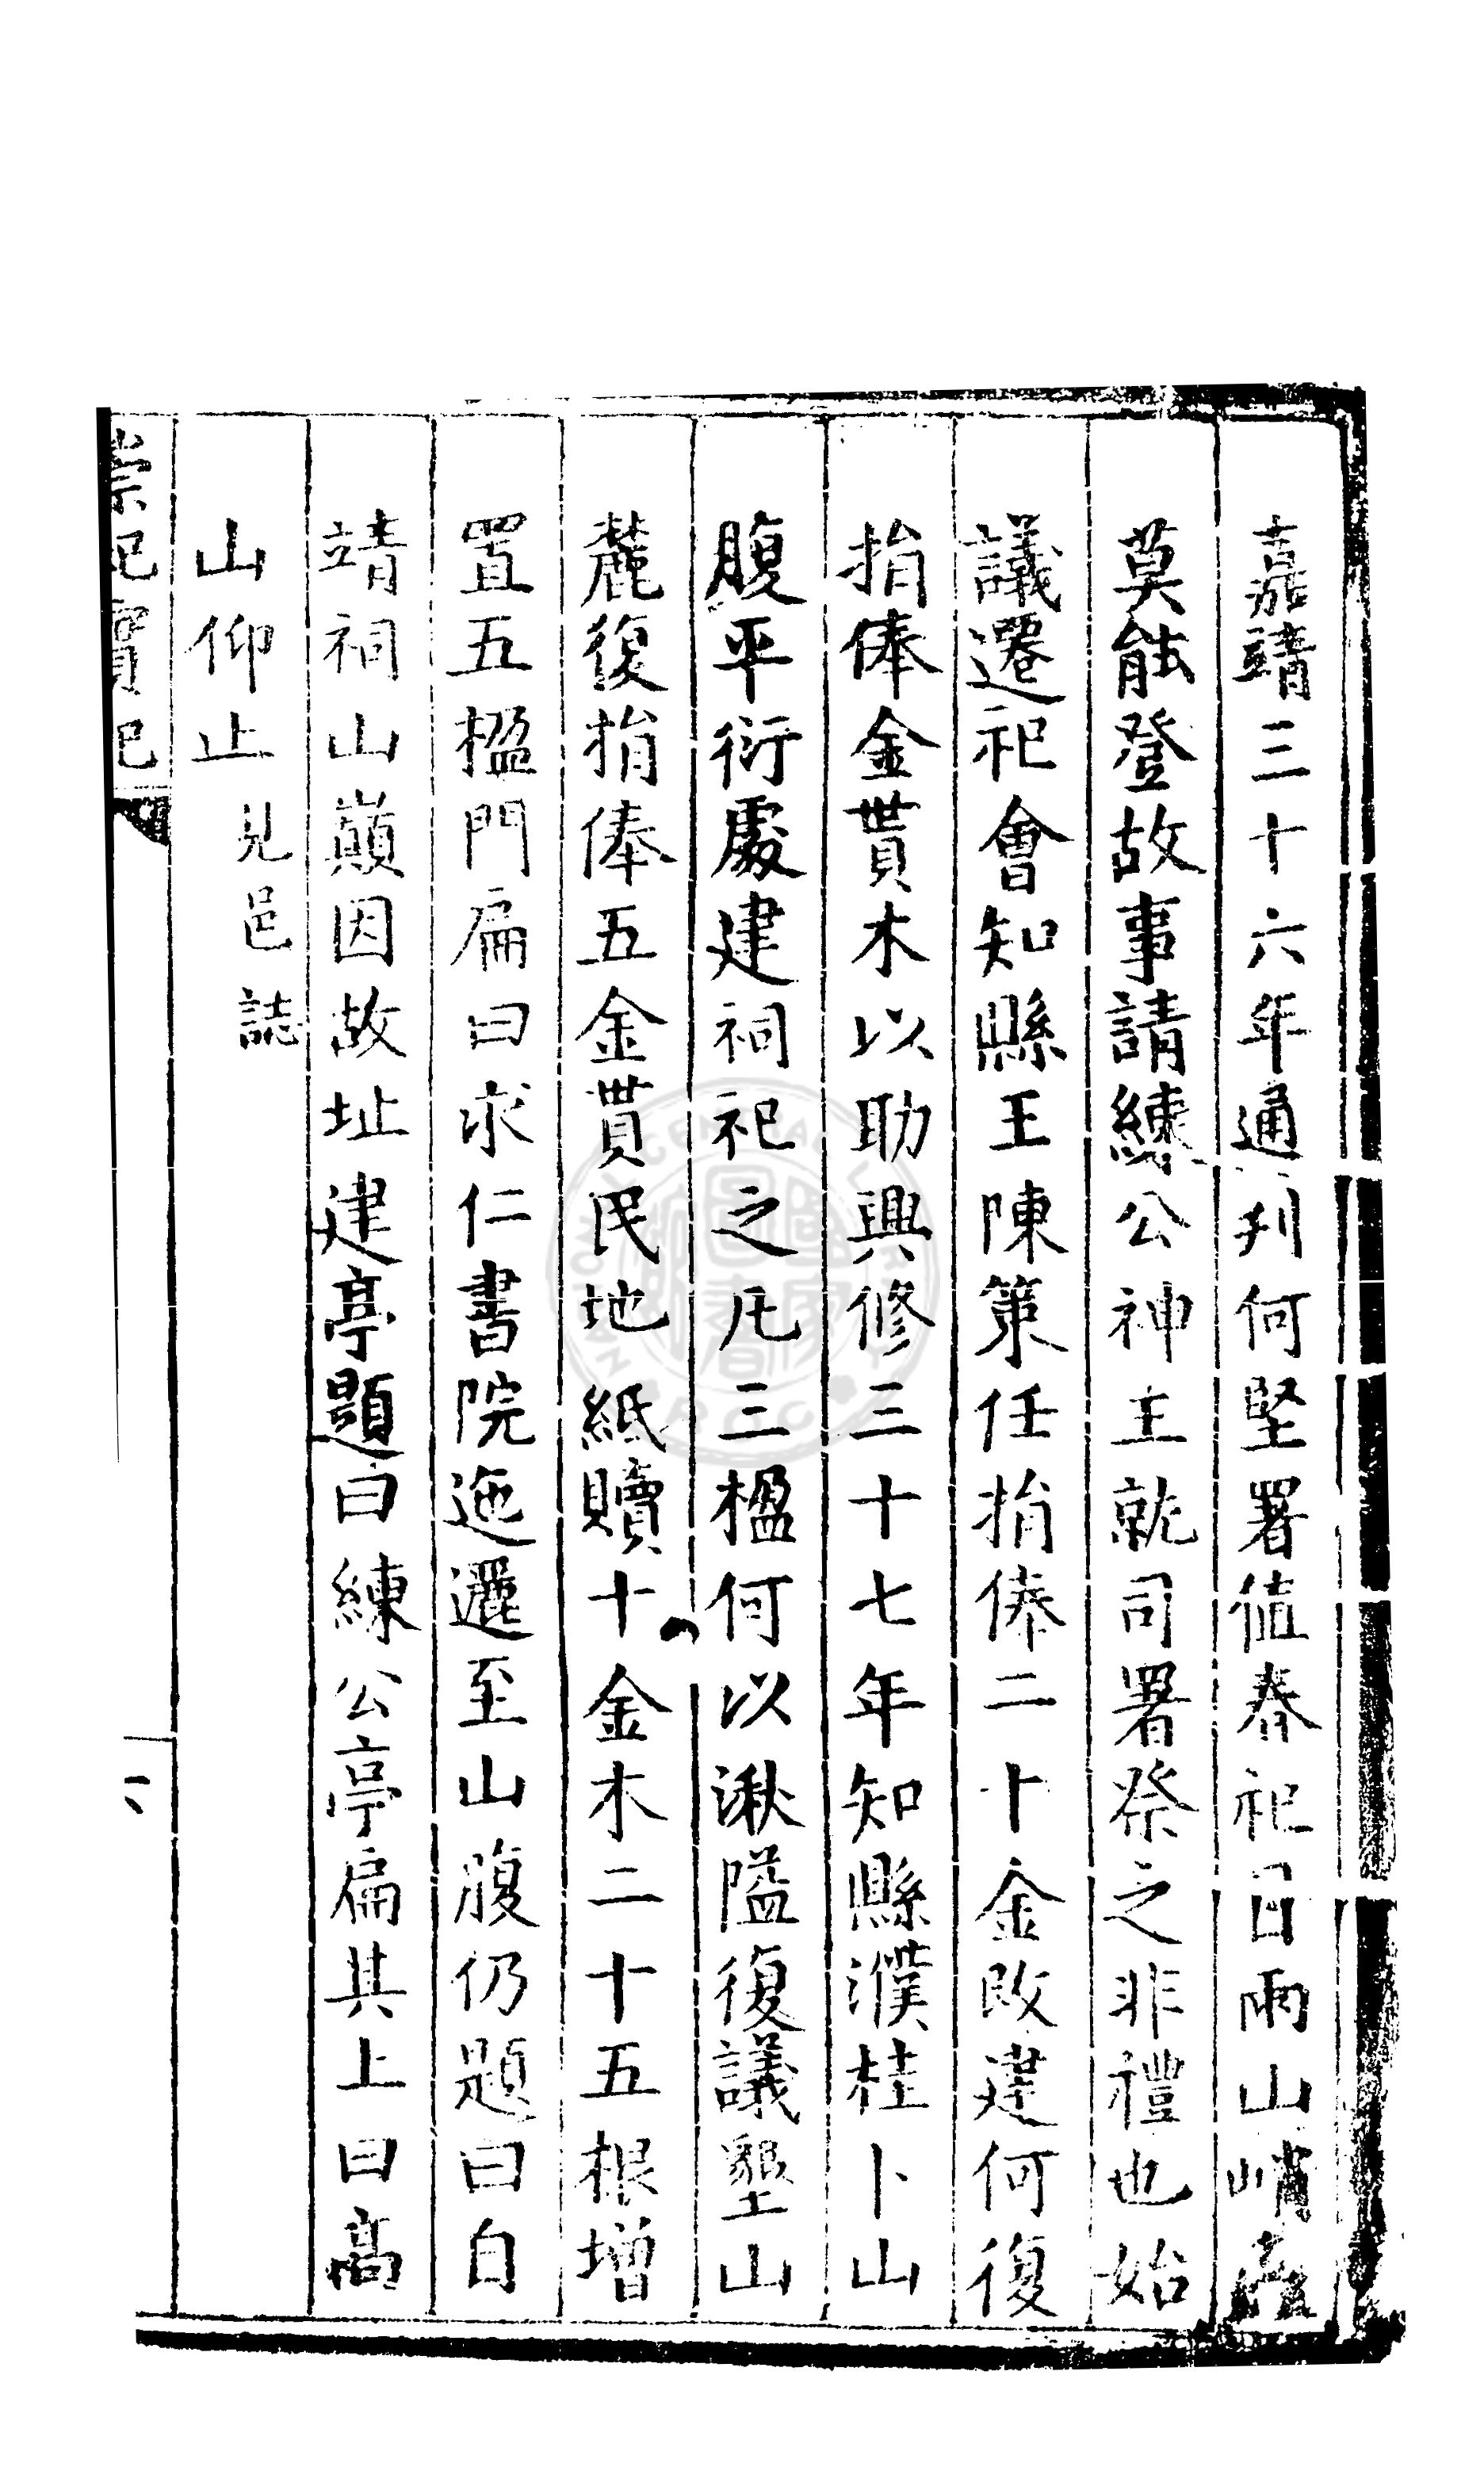 嘉靖三十六年通判何堅署值春祀日雨山峭
莫能登故事請練公神主就司署祭之非禮也始
議遷祀會知縣王陳策任捐俸二十金改建何復
捐俸金貰木以助興修三十七年知縣濮桂卜山
腹平衍處建祠祀之凡三楹何以湫隘復議墾山
麓復捐俸五金貰民地紙贖十金木二十五根增
置五楹門扁曰求仁書院迤邐至山腹仍題曰白
靖祠山巔因故址建亭題曰練公亭扁其上曰高
山仰止見邑誌
崇祀實紀
二